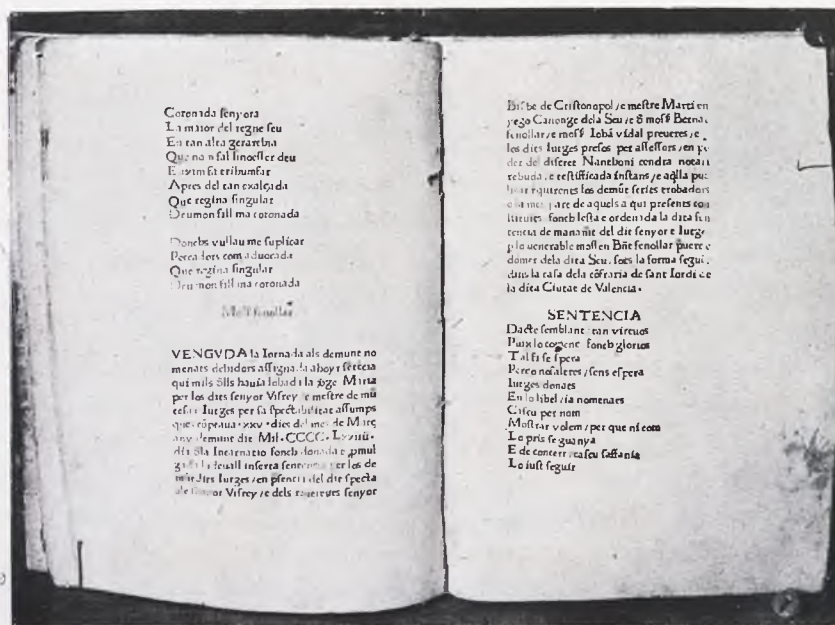 Coronada senyora
La maior del regne seu
En tan alta
Que no n sal sino esser deu
tribumfar
Apres del tan exalçada
Que regina singular
Deu mon fill ma coronada
Donchs vullau me suplicar
com aduocada
Que regina singular
Deu mon fill ma coronada
Mossē fenollar
VENGVDA la Iornada als demunt no
menats debidors assignada ahoyr sētēcia
qui mils d̄lls hauia lohada la v̄ge Maria
per los dits senyor Visrey e mestre de mū
tesa Iutges per sa spectabilitat assumps
que cōptaua .xxv. dies del mes de Març
any demunt dit Mil.CCCC.Lxxiiii.
d̄la Incarnacio fonch donada e pmul
gada la deuall inserta sentencia per los de
munt dits Iutges /en psencia del dit specta
ble senyor Visrey /e dels reuerents senyor
Bisbe de Cristonopol /e mestre Marti en
yego Canonge dela Seu /e d̄ mossē Bernat
fenollar /e mossē Iohā vidal preueres /e
los dits Iutges presos per assessors /en po
der de discret Nantboni condra notari
rebuda /e testifficada instans /e aq̄lla pu
requirents los demūt scrits trobadors
part de aquels a qui presents con
fonch lesta e ordenada la dita sen
tencia de manamēt del dit senyor e Iutge
p lo venerable mossen Bn̄t fenollar puere e
domer dela dita Seu. sots la forma segui.
dins la casa dela cōfraria de sant Iordi de
la dita Ciutat de Valencia.
SENTENCIA
Dacte semblant tan virtuos
Puix lo fonch glorios
Tal fi se spera
Pero nosaltres /sens espera
Iutges donats
En lo libel /ia nomenats
Cascu per nom
Mostrar volem /per que ni com
Lo pris se guanya
E de concert cascu saffanya
Lo iust seguir